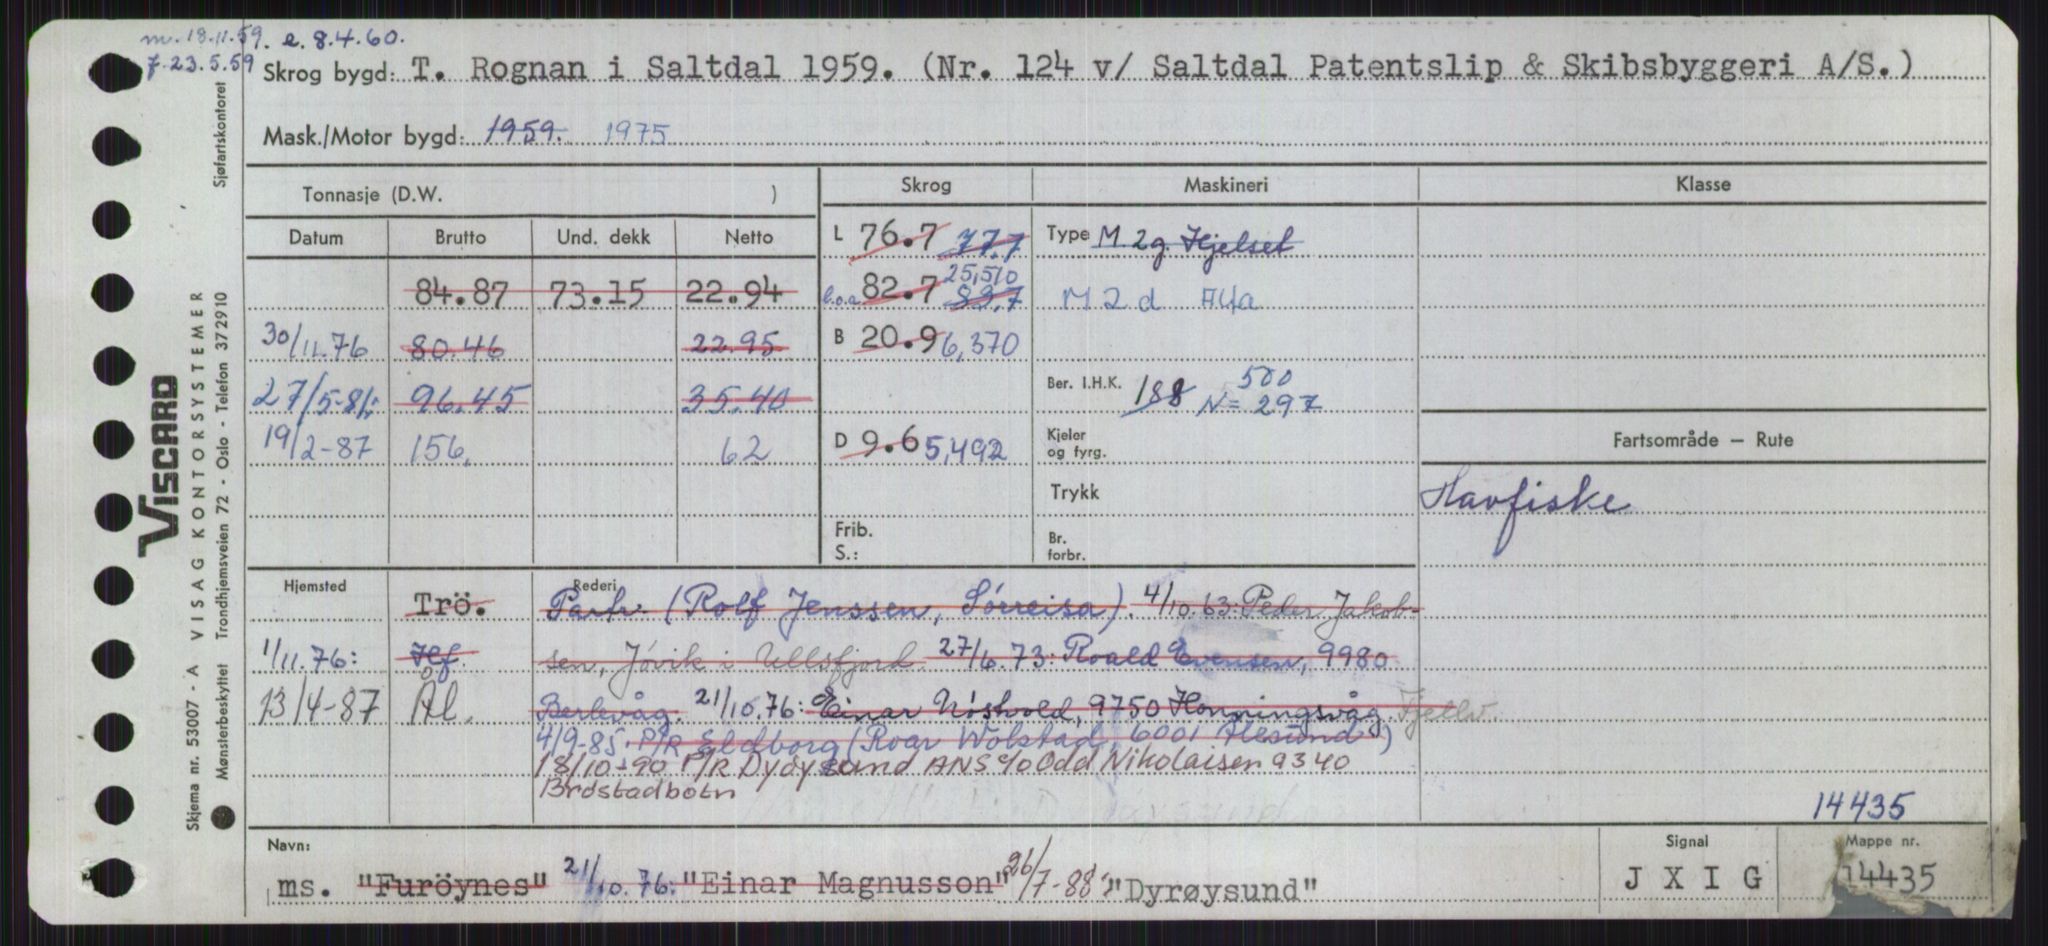 m. 18.11.59. e. 8.4.60.
f. 23.5.59
Skrog bygd: T. Rognan i Saltdal 1959. (Nr. 124 v/ Saltdal Patentslip & Skibsbyggeri A/S.)
Mask./Motor bygd: 1959. 1975
Tonnasje (D.W. )
Skrog Maskineri Klasse
Datum Brutto Und. dekk Netto
L 76.7 77.7 Type M. 2 g. Hjelset
84.87 73.15 22.94
25,510
b.o.a. 82.7 83.7 M 2 d Alfa
30/11.76 80.46 22.95
B 20.9 6,370
27/5-81: 96.45 35.40
Ber. I.H.K. 188 500
N = 297
19/2-87 156. 62
D 9.6 5,492 Kjeler og fyrg.
Fartsområde – Rute
Trykk
Havfiske
Frib.
S.:
Br. forbr.
Hjemsted Rederi
Trö. Partr. (Rolf Jenssen, Sörreisa). 4/10.63: Peder Jakob-
1/11.76: Hf. sen, Jøvik i Ullsfjord 27/6.73: Roald Evensen, 9980
13/4-87 Ål. Berlevåg. 21/10.76: Einar Nöstvold, 9750 Honningsvåg.
4/9-85. P/R Eldborg (Roar Wolstad, 6001 Ålesund)
18/10-90 P/R Dyöysund ANS c/o Odd Nikolaisen 9340
Brøstadbotn
14435
Navn: Signal Mappe nr.
ms. "Furöynes" 21/10.76: "Einar Magnusson" 26/7-88: "Dyrøysund" J X I G 14435
VISCARD
Skjema nr. 53007 - A VISAG KONTORSYSTEMER
Mønsterbeskyttet Trondhjemsveien 72 - Oslo - Telefon 372910 Sjøfartskontoret